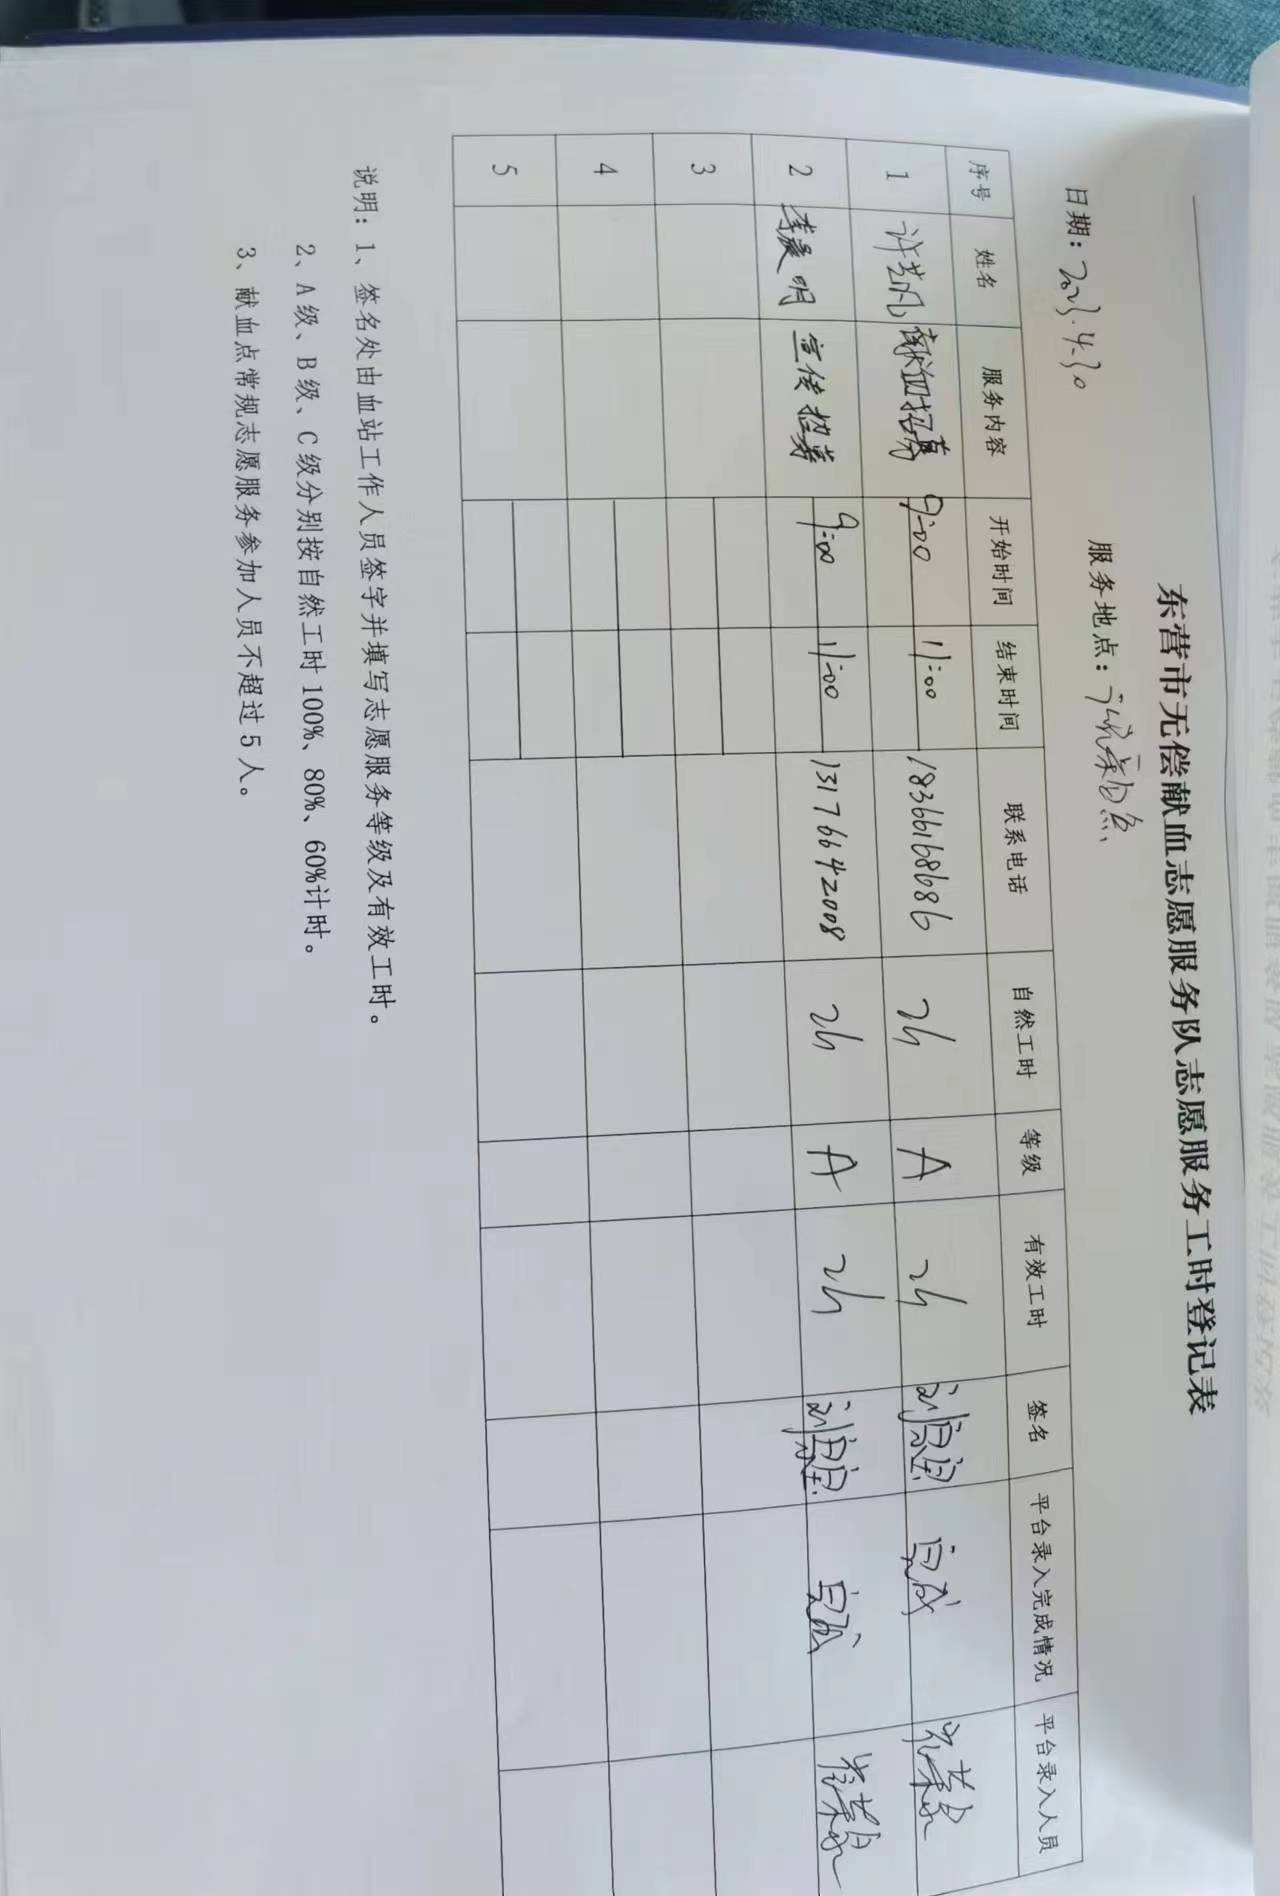 东营市无偿献血志愿服务队志愿服务工时登记表
日期：2023.4.30 服务地点：
序号 姓名 服务内容 开始时间 结束时间 联系电话 自然工时 等级 有效工时 签名 平台录入完成情况 平台录入人员
1 许芸凡 献血招募 9:00 11:00 18366168686 2h A 2h 完成
2 李晨明 宣传招募 9:00 11:00 13176642008 2h A 2h 完成
3
4
5
说明：1、签名处由血站工作人员签字并填写志愿服务等级及有效工时。
2、A级、B级、C级分别按自然工时100%、80%、60%计时。
3、献血点常规志愿服务参加人员不超过5人。